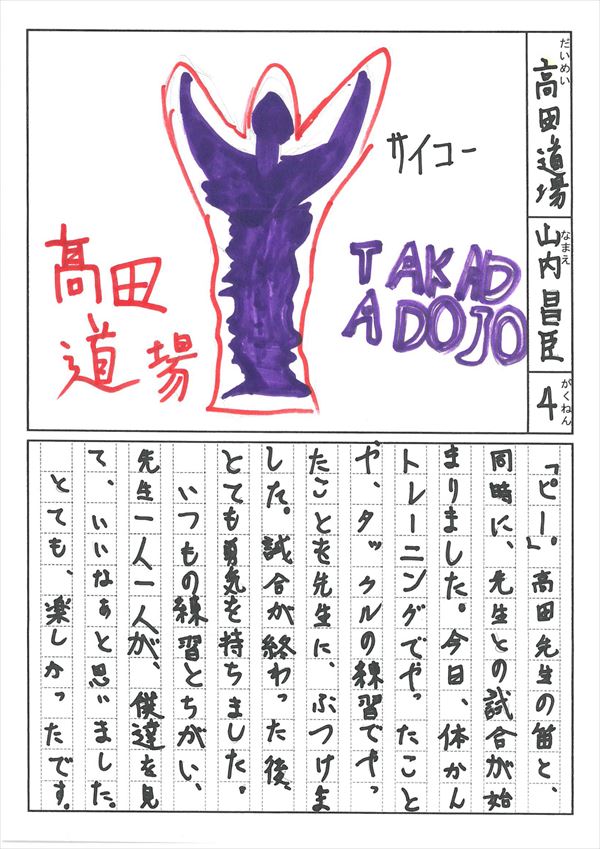 だいめい
高田道場
なまえ
山内昌臣
がくねん
4
サイコー
TAKAD
ADOJO
高田
道場
「ピー。」高田先生の笛と、
同時に、先生との試合が始
まりました。今日、体かん
トレーニングでやったこと
や、タックルの練習でやっ
たことを先生に、ぶつけま
した。試合が終わった後、
とても勇気を持ちました。
いつもの練習とちがい、
先生一人一人が、僕達を見
て、いいなぁと思いました。
とても、楽しかったです。